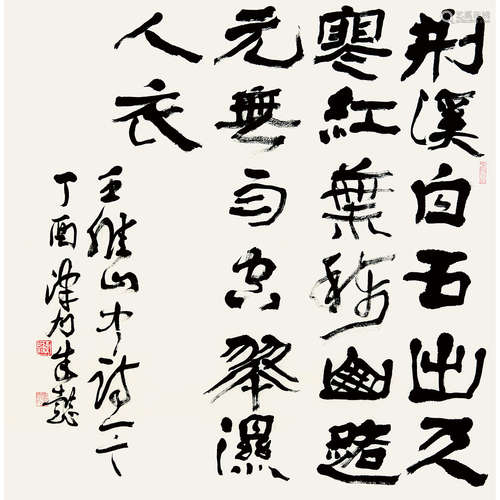 荆溪白石出天
寒紅葉稀幽路
元無雨空翠濕
人衣
王維山中詩一首
丁酉津門朱懿